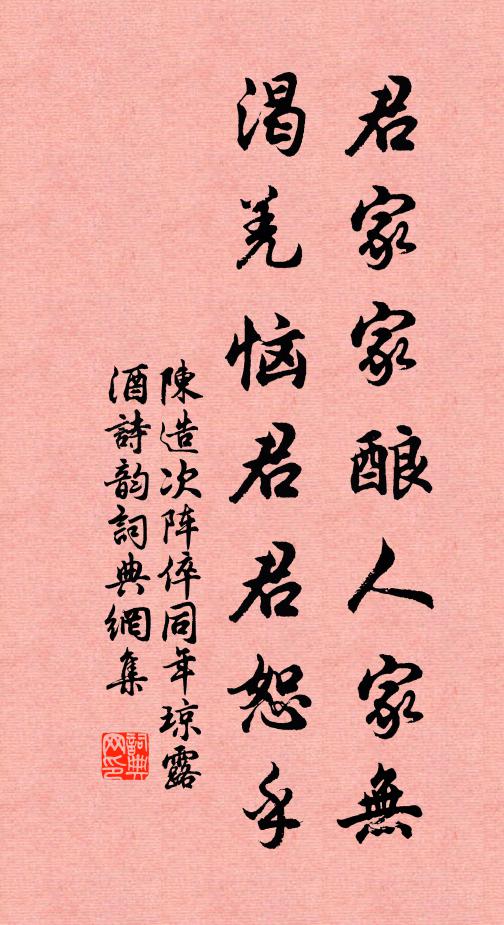 君家家酿人家無
渴羌恼君君恕乎
陳造次阵倅同年琼露
酒詩韵詞典網集
詞典
网印